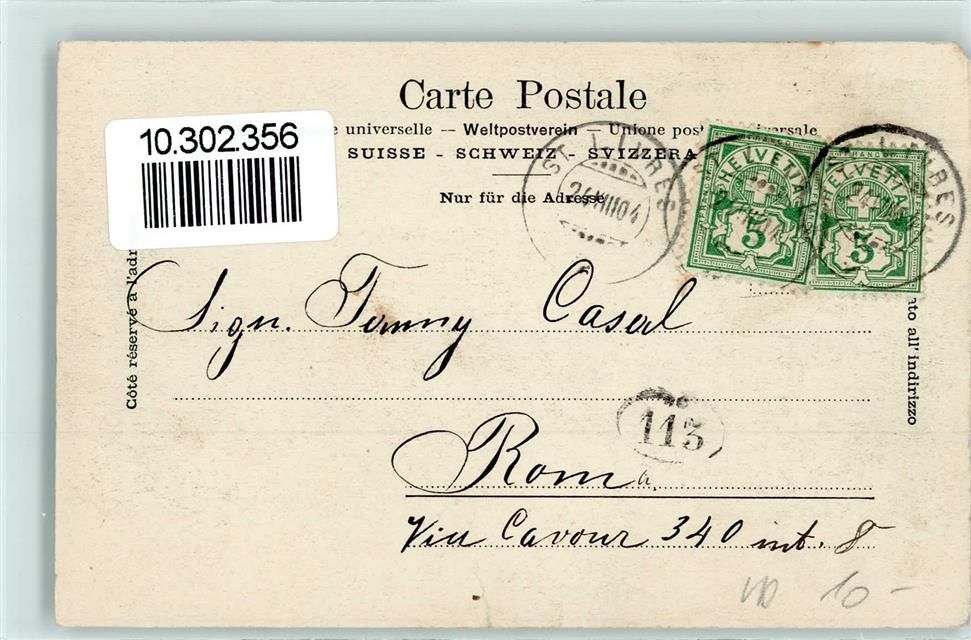 Carte Postale
10.302.356
e universelle -- Weltpostverein -- Unione pos
SUISSE - SCHWEIZ - SVIZZERA
Nur für die Adresse
ST LIVRES
24 VIII 04
HELVETIA
5
HELVETIA
5
Côté réservé à l'adr
ato all' indirizzo
Sign. Fanny Casal
113
Roma
Via Cavour 340 int. 8
10-